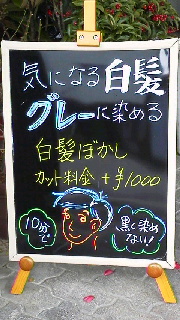 気になる白髪
グレーに染める
白髪ぼかし
カット料金+¥1000
10分で
黒く染め
ない!